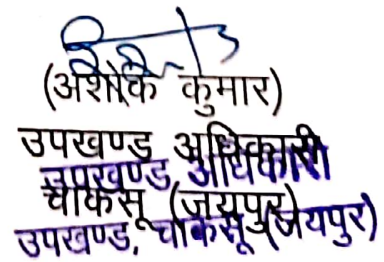 (अशोक कुमार)
उपखण्ड अधिकारी
उपखण्ड अधिकारी
चाकसू (जयपुर)
उपखण्ड, चाकसू (जयपुर)